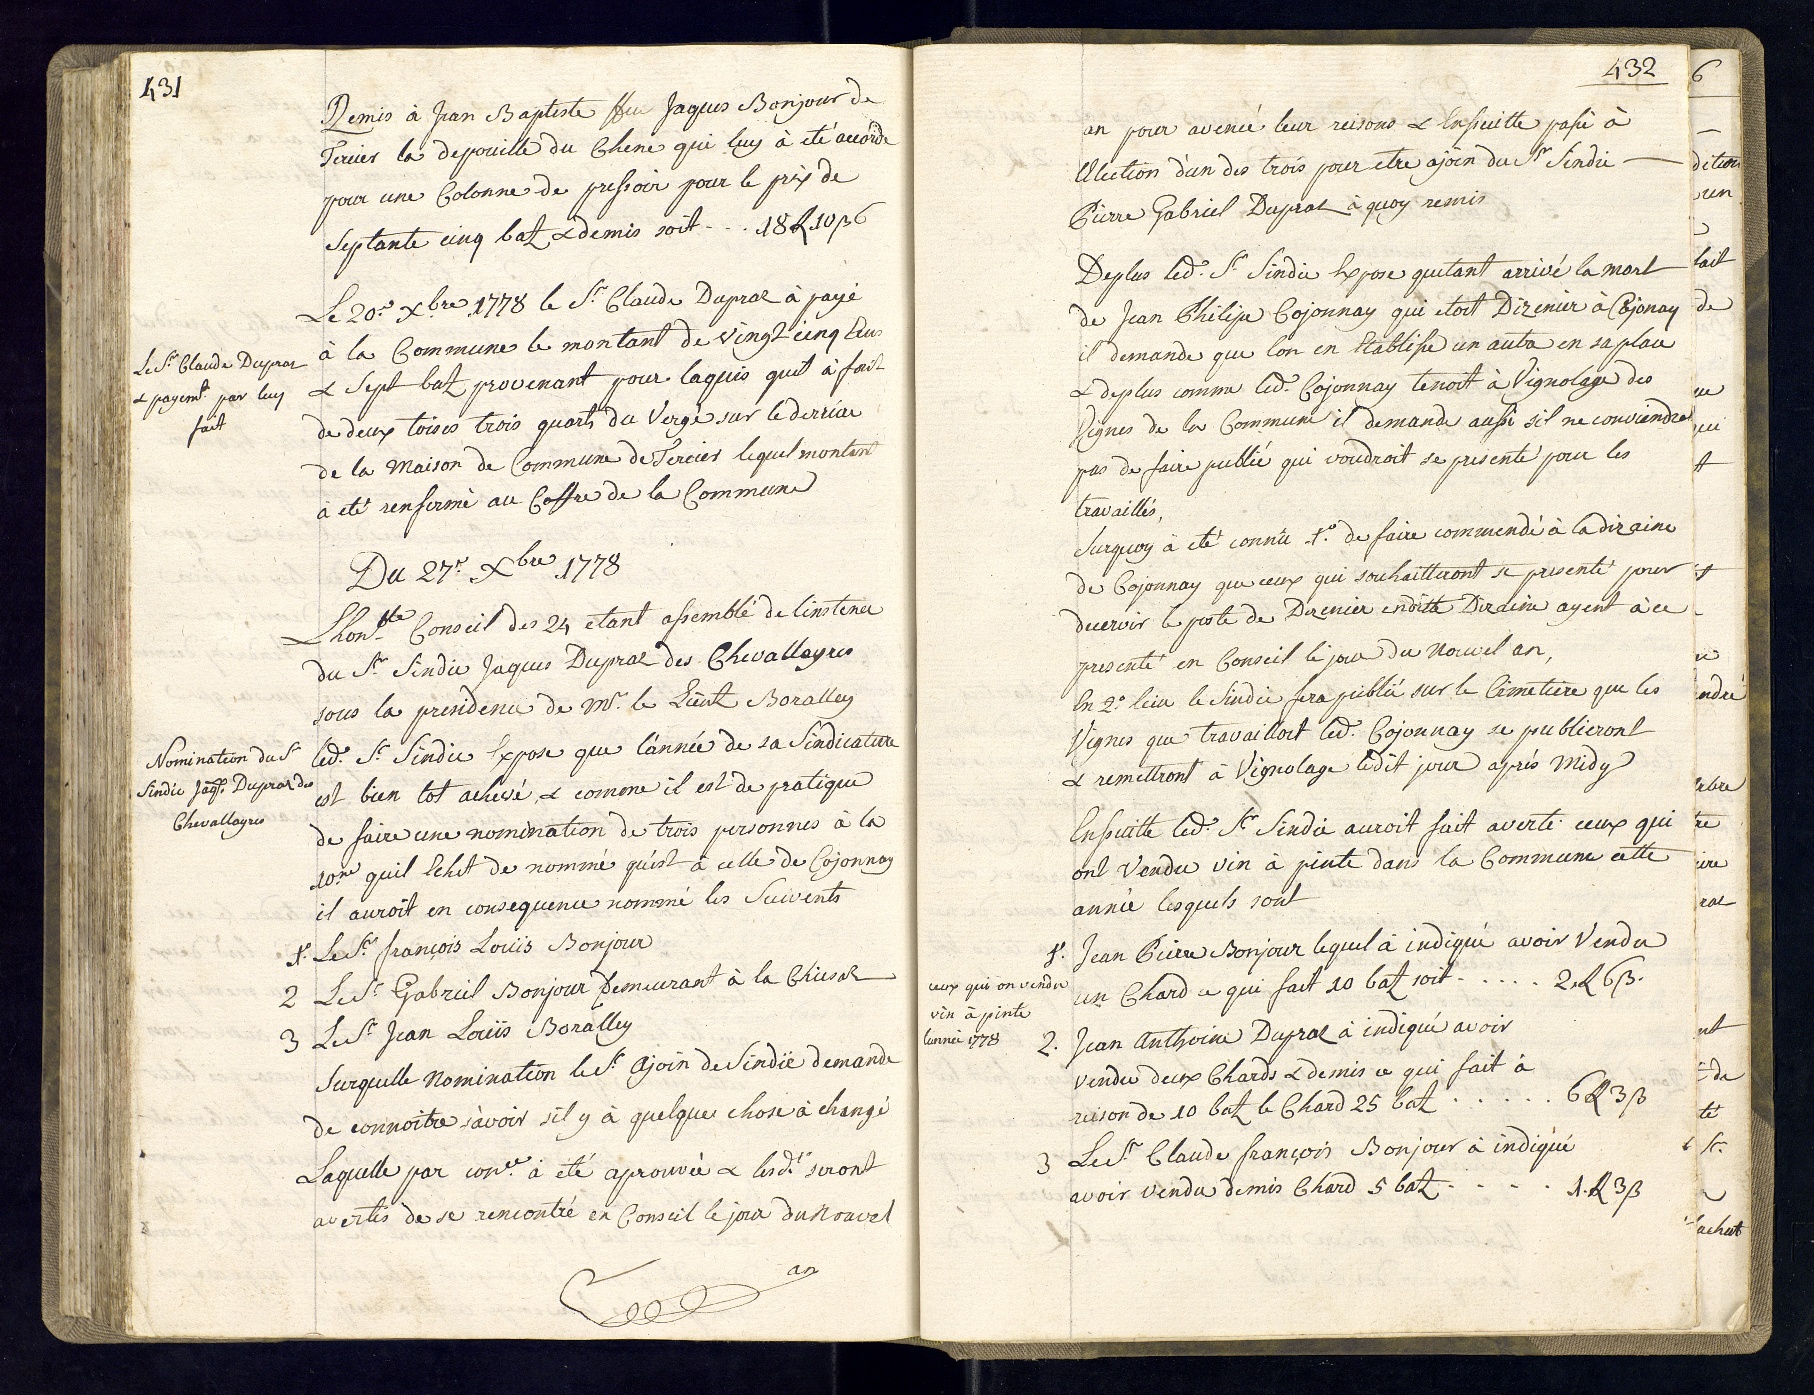 431
Remis à Jean Baptiste ffeu Jaques Bonjour de
Tercier la depouille du Chene qui luy à eté accorde
pour une Colonne de pressoir pour le prix de
Septante cinq batz & demis soit - - . 18 ₶ 10 ß 6
Le 20.e Xbre 1778 le Sr. Claude Dupraz à payé
à la Commune le montant de Vingt cinq Ecus
Le Sr. Claude Dupraz
& payemt. par luy
fait
& Sept batz provenant pour laquis quil à fait
de deux toises trois quarts du Vergé sur le derriére
de la Maison de Commune de Tercier lequel montant
à eté renfermé au Coffre de la Commune
Du 27.e Xbre 1778
Lhon.ble Conseil des 24 etant assemblé de linstence
du Sr. Sindic Jaques Dupraz des Chevalleyres
sous la presidence de Mr. le Lieut Boralley
Nomination du Sr
Sindic Jaqs. Dupraz des
Chevalleyres
led. Sr. Sindic Expose que l'année de sa Sindicature
est bien tot achevé, & comme il est de pratique
de faire une nomination de trois personnes à la
10.ne quil Echet de nommé qu'est à celle de Cojonnay
il auroit en consequence nommé les Suivents
1°. Le Sr. françois Louïs Bonjour
2 Le Sr. Gabriel Bonjour demeurant à la Chiesaz
3 Le Sr. Jean Louïs Boralley
Surquelle Nomination le Sr. Ajoin de Sindic demande
de connoitre sàvoir sil y à quelque chose à changé
Laquelle par con.ce à été aprouvée & lesd.ts seront
avertis de se rencontré en Conseil le jour du Nouvel
an
432
an pour avencé leur reisons & Ensuitte passé à
Election d'un des trois pour etre ajoin du Sr. Sindic —
Pierre Gabriel Dupraz à quoy remis
Deplus led. Sr. Sindic Expose quetant arrivé la mort
de Jean Philipe Cojonnay qui etoit Dizenier à Cojonay
il demande que lon en Etablisse un autre en sa place
& deplus comme led. Cojonnay tenoit à Vignolage des
Vignes de la Commune il demande aussi sil ne conviendroit
pas de faire publié qui voudroit se presenté pour les
travaillés,
Surquoy à eté connû 1°. de faire commendé à la dizaine
de Cojonnay que ceux qui souhaitteront se presenté pour
decervir le poste de Dizenier endite Dizaine ayent à ce
presenté en Conseil le jour du Nouvel an,
En 2.e lieu le Sindic fera publié sur le Cimetiere que les
Vignes que travailloit led. Cojonnay se publieront
& remettront à Vignolage ledit jour aprés midy
Ensuitte led. Sr. Sindic auroit fait averti ceux qui
ont Vendu vin à pinte dans la Commune cette
année lesquels sont
1°. Jean Pierre Bonjour lequel à indiqué avoir Vendu
ceux qui on vendu
vin à pinte
lannée 1778
un Chard ce qui fait 10 batz soit - . . . . 2 ₶ 6 ß.
2. Jean Anthoine Dupraz à indiqué avoir
vendu deux Chards & demis ce qui fait à
reison de 10 batz le Chard 25 batz . . . . . 6 ₶ 3 ß
3 Le Sr. Claude françois Bonjour à indiqué
avoir vendu demis Chard 5 batz - . . - . 1. ₶ 3 ß